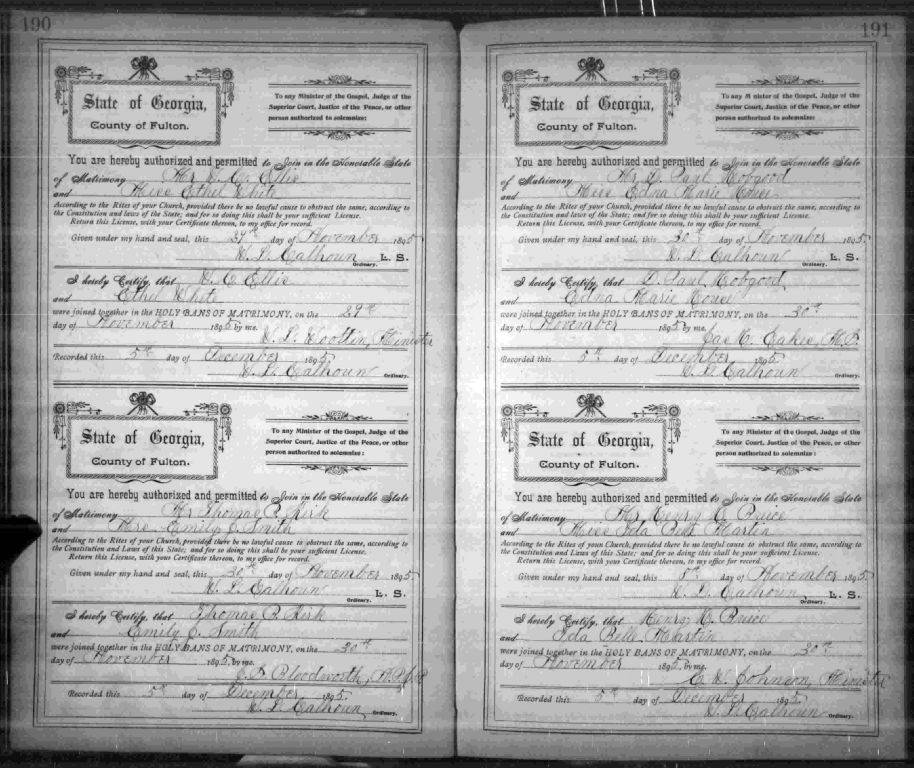 190
State of Georgia,
County of Fulton.
To any Minister of the Gospel, Judge of the
Superior Court, Justice of the Peace, or other
person authorized to solemnize:
You are hereby authorized and permitted to Join in the Honorable State
of Matrimony Mr W. E. Ellis
and Miss Ethel White
According to the Rites of your Church, provided there be no lawful cause to obstruct the same, according to
the Constitution and laws of this State; and for so doing this shall be your sufficient License.
Return this License, with your Certificate thereon, to my office for record.
Given under my hand and seal, this 27th day of November 1895
W. L. Calhoun L. S.
Ordinary.
I hereby Certify, that W. E. Ellis
and Ethel White
were joined together in the HOLY BANS OF MATRIMONY, on the 27th
day of November 1895 by me.
Minister
Recorded this 5th day of December 1895
W. L. Calhoun Ordinary.
State of Georgia,
County of Fulton.
To any Minister of the Gospel, Judge of the
Superior Court, Justice of the Peace, or other
person authorized to solemnize:
You are hereby authorized and permitted to Join in the Honorable State
of Matrimony Mr Thomas P. Kirk
and Mrs. Emily E. Smith
According to the Rites of your Church, provided there be no lawful cause to obstruct the same, according to
the Constitution and Laws of this State; and for so doing this shall be your sufficient License.
Return this License, with your Certificate thereon, to my office for record.
Given under my hand and seal, this 30th day of November 1895
W. L. Calhoun L. S.
Ordinary.
I hereby Certify, that Thomas P. Kirk
and Emily E. Smith
were joined together in the HOLY BANS OF MATRIMONY, on the 30th
day of November 1895, by me.
Bloodworth,
Recorded this 5th day of December 1895
W. L. Calhoun Ordinary.
191
State of Georgia,
County of Fulton.
To any Minister of the Gospel, Judge of the
Superior Court, Justice of the Peace, or other
person authorized to solemnize:
You are hereby authorized and permitted to Join in the Honorable State
of Matrimony Mr D. Paul Hobgood
and Miss Edna Marie
According to the Rites of your Church, provided there be no lawful cause to obstruct the same, according to
the Constitution and laws of this State; and for so doing this shall be your sufficient License.
Return this License, with your Certificate thereon, to my office for record.
Given under my hand and seal, this 30th day of November 1895
W. L. Calhoun L. S.
Ordinary.
I hereby Certify, that D. Paul Hobgood
and Edna Marie
were joined together in the HOLY BANS OF MATRIMONY, on the 30th
day of November 1895 by me.
Eakes,
Recorded this 5th day of December 1895
W. L. Calhoun Ordinary.
State of Georgia,
County of Fulton.
To any Minister of the Gospel, Judge of the
Superior Court, Justice of the Peace, or other
person authorized to solemnize:
You are hereby authorized and permitted to Join in the Honorable State
of Matrimony Mr Henry O. Price
and Miss Ida Belle Martin
According to the Rites of your Church, provided there be no lawful cause to obstruct the same, according to
the Constitution and Laws of this State; and for so doing this shall be your sufficient License.
Return this License, with your Certificate thereon, to my office for record.
Given under my hand and seal, this 5th day of November 1895
W. L. Calhoun L. S.
Ordinary.
I hereby Certify, that Henry O. Price
and Ida Belle Martin
were joined together in the HOLY BANS OF MATRIMONY, on the 30th
day of November 1895, by me.
Johnson, Minister
Recorded this 5th day of December 1895
W. L. Calhoun Ordinary.